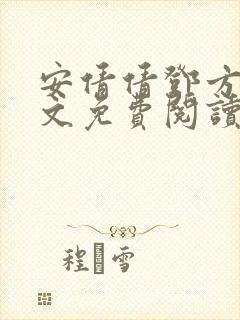 安倩倩鄧方
文免費閱讀
程雪